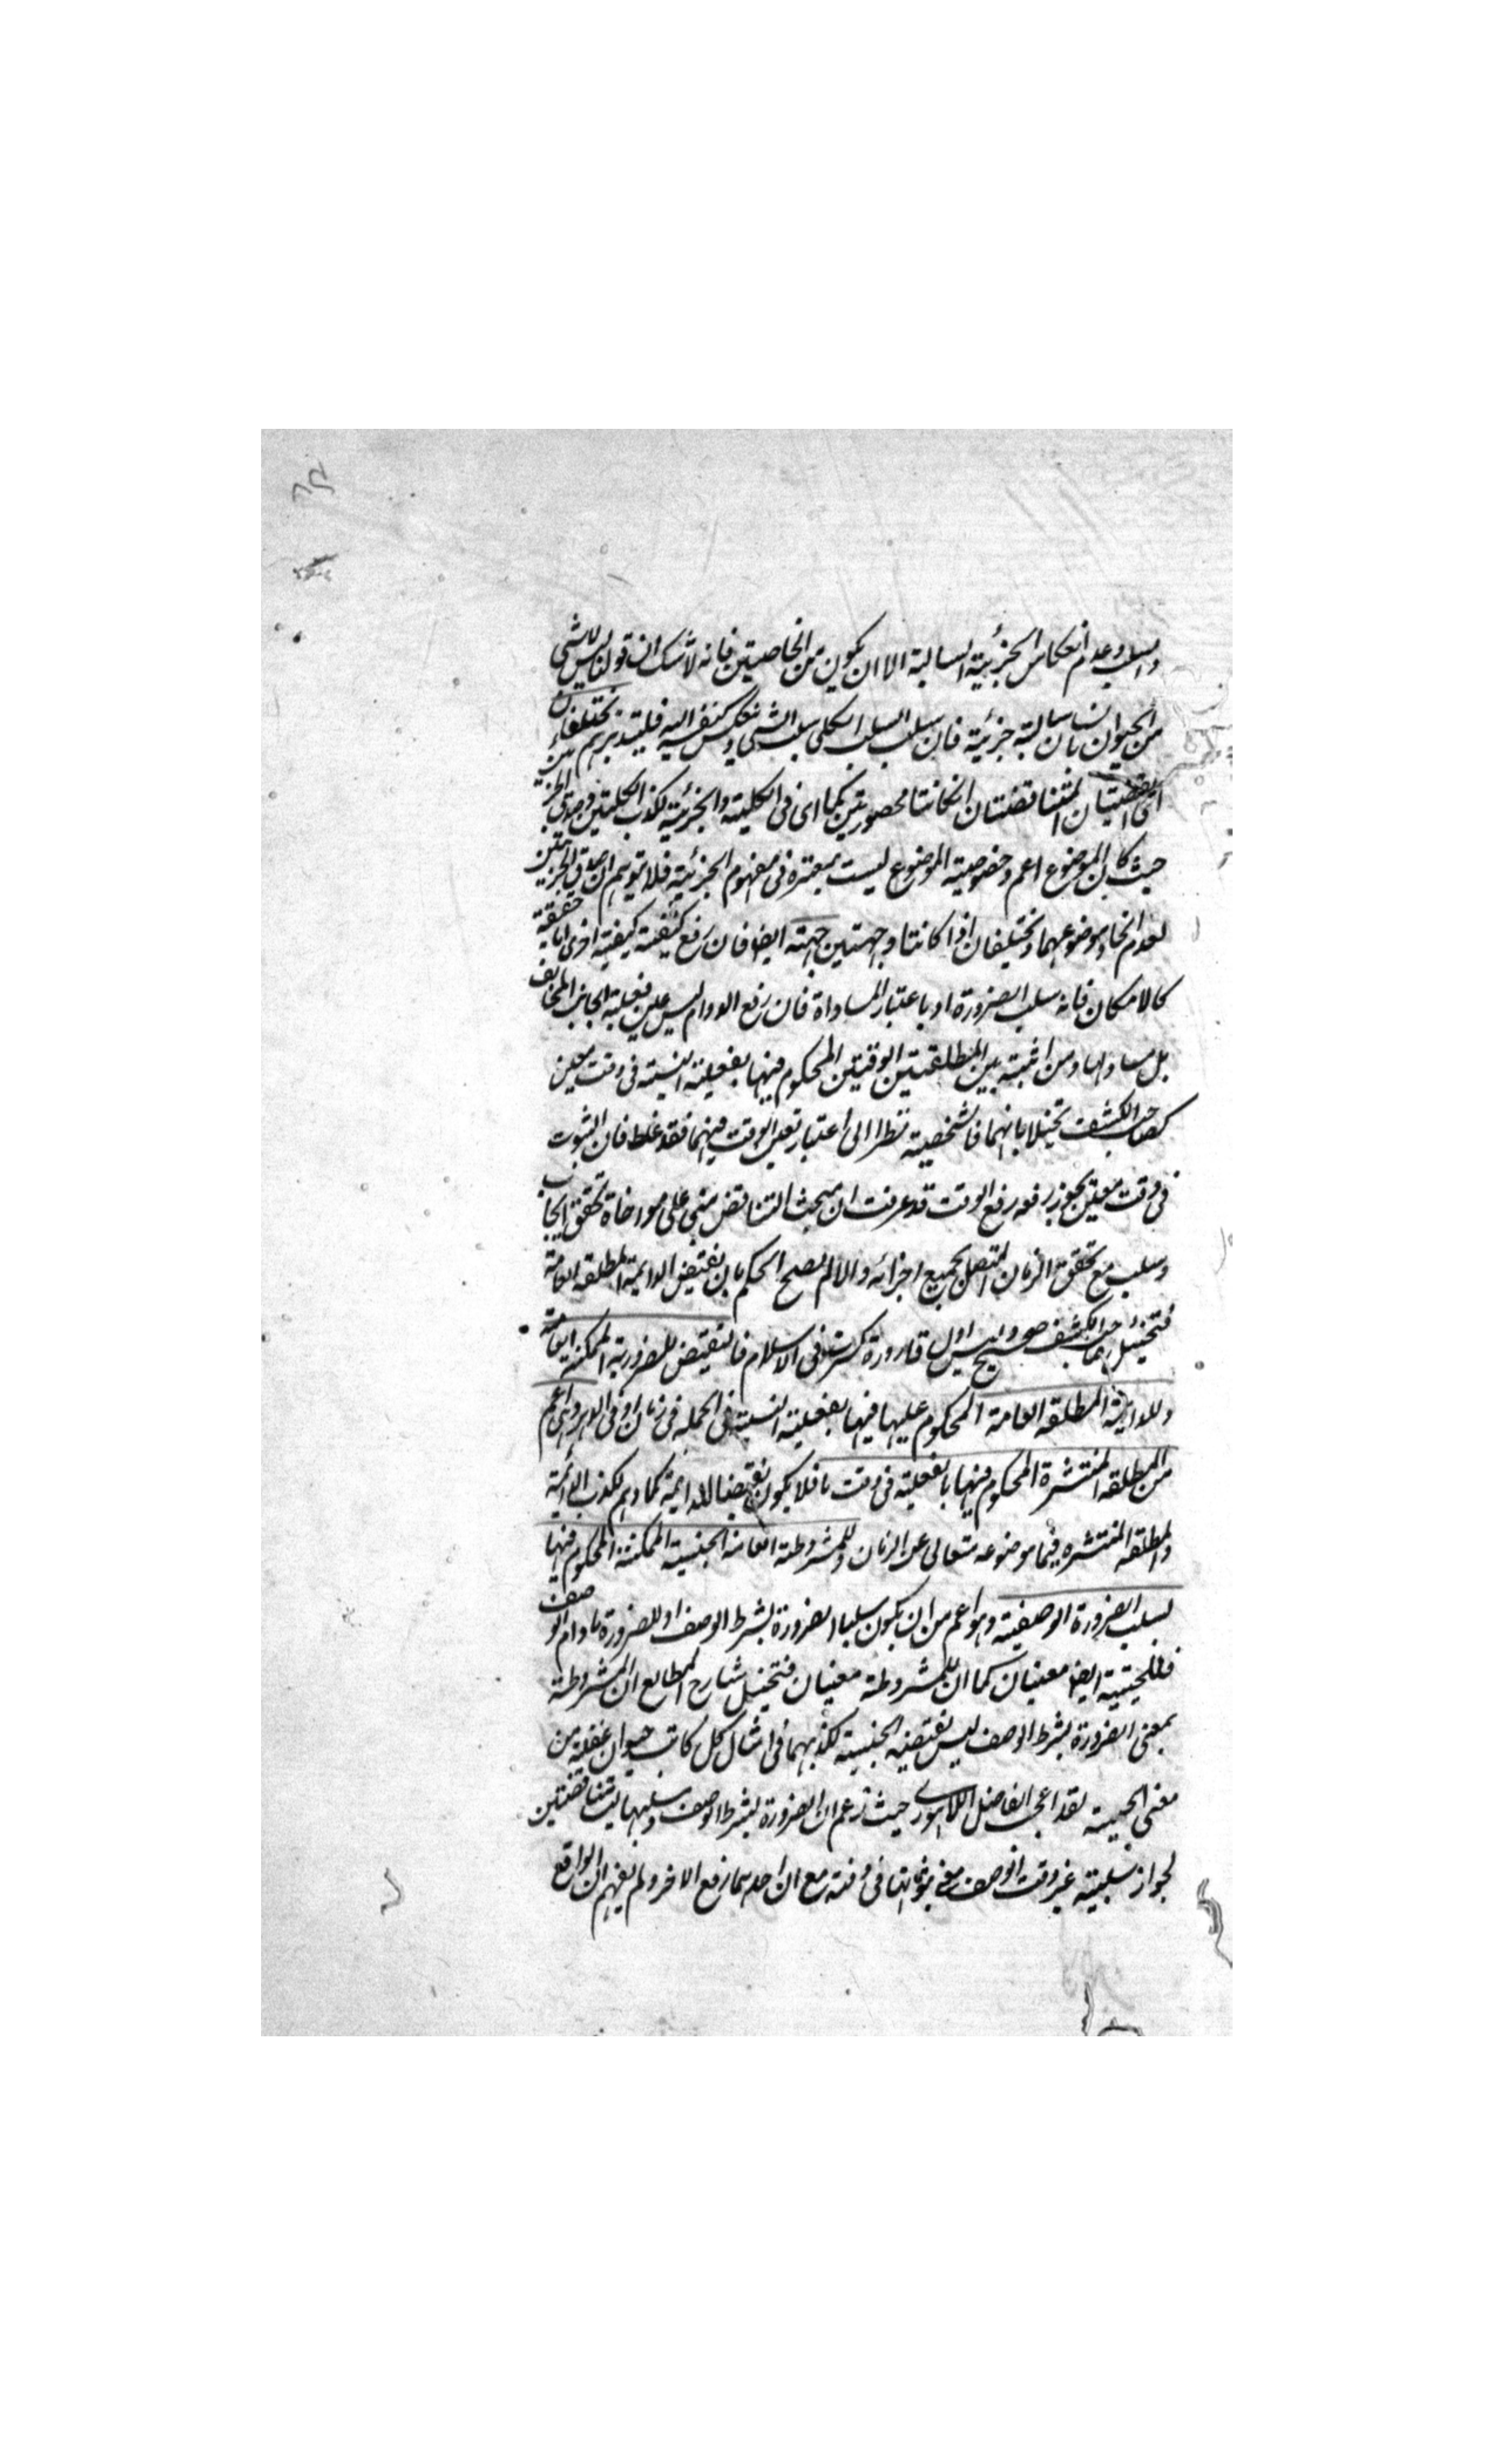 والسلب وعدم انعكاس الجزئية السالبة الا ان يكون من الخاصيتين فانه لا شك ان قولنا ليس لا شئ
من الحيوان بانسان سالبة جزئية فان سلب السلب الكلي سلب الشئ فليتدبر ثم تختلفان
القضيتان المتناقضتان ان كانتا محصورتين كما اى في الكلية والجزئية لكذب الكليتين وصدق الجزئيتين
حيث كان الموضوع اعم وخصوصية الموضوع ليست بمعتبرة في مفهوم الجزئية فلا تتوهم ان صدق الجزئيتين
لعدم اتحاد موضوعهما وتختلفان اذا كانتا وجهتين جهة ايضا فان رفع كيفية كيفية اخرى اما حقيقة
كالامكان فانه سلب الضرورة او باعتبار المساواة فان رفع الدوام ليس عين فعلية الجانب المخالف
بل مساو لها ومن اثبته بين المطلقتين الوقتيتين المحكوم فيها بفعلية النسبة في وقت معين
كصاحب الكشف تخيلا بانهما كالشخصية نظرا الى اعتبار تعين الوقت فيهما فقد غلط فان الثبوت
في وقت معين يجوز رفعه رفع الوقت قد عرفت ان مبحث التناقض مبني على مواخاة تحقق ايجاب
وسلب مع تحقق الزمان المتصل بجميع اجزائه والا لم يصح الحكم بان نقيض الدائمة المطلقة العامة
فتخيل صاحب الكشف صحيح وليس اول قارورة كسرت في الاسلام فالنقيض للضرورية الممكنة العامة
وللدائمة المطلقة العامة المحكوم عليها فيها بفعلية النسبة في الجملة في زمان او في الدهر وهي اعم
من المطلقة المنتشرة المحكوم فيها بالفعلية في وقت ما فلا يكون نقيضا للدائمة كما وهم لكذب الدائمة
والمطلقة المنتشرة فيما موضوعه متعالى عن الزمان وللمشروطة العامة الحينية الممكنة المحكوم فيها
بسلب الضرورة الوصفية وهو اعم من ان يكون سلبا للضرورة بشرط الوصف او للضرورة ما دام الوصف
فللحينية ايضا معنيان كما ان للمشروطة معنيان فتخيل شارح المطالع ان المشروطة
بمعنى الضرورة بشرط الوصف ليس نقيضه الحينية لكذبهما في امثال كل كاتب حيوان غفلة من
معنى الحينية لقد اعجب الفاضل اللاهوري حيث زعم ان الضرورة بشرط الوصف وسلبها ليستا بمتناقضتين
لجواز سلبيته غير وقت الوصف مع ثبوتها في وقته مع ان احدهما رفع الاخر ولم يفهم ان الواقع